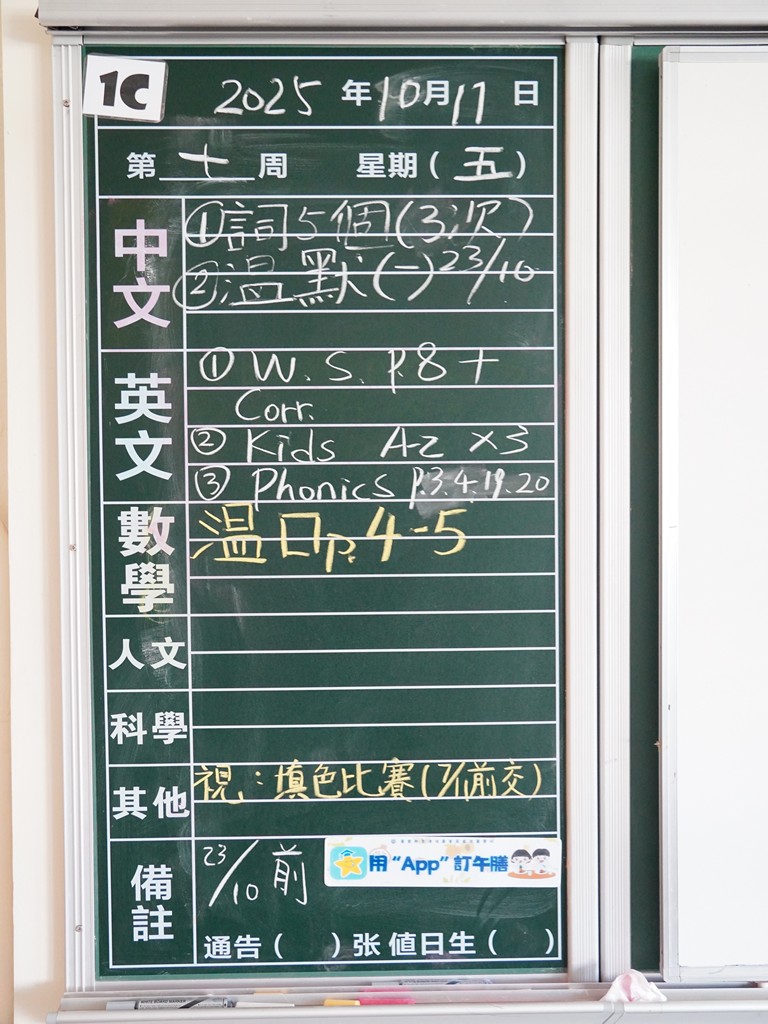 1C
2025 年 10月 17 日
第 十 周 星期 ( 五 )
中文
①詞5個(3次)
②溫默(一)23/10
英文
① W. S. p.8 +
Corr.
② Kids A-Z ×3
③ Phonics p.3.4.19.20
數學
溫口p.4-5
人文
科學
其他
視：填色比賽(7/1前交)
備註
23/10 前
用“App”訂午膳
通告 ( ) 张 值日生 ( )